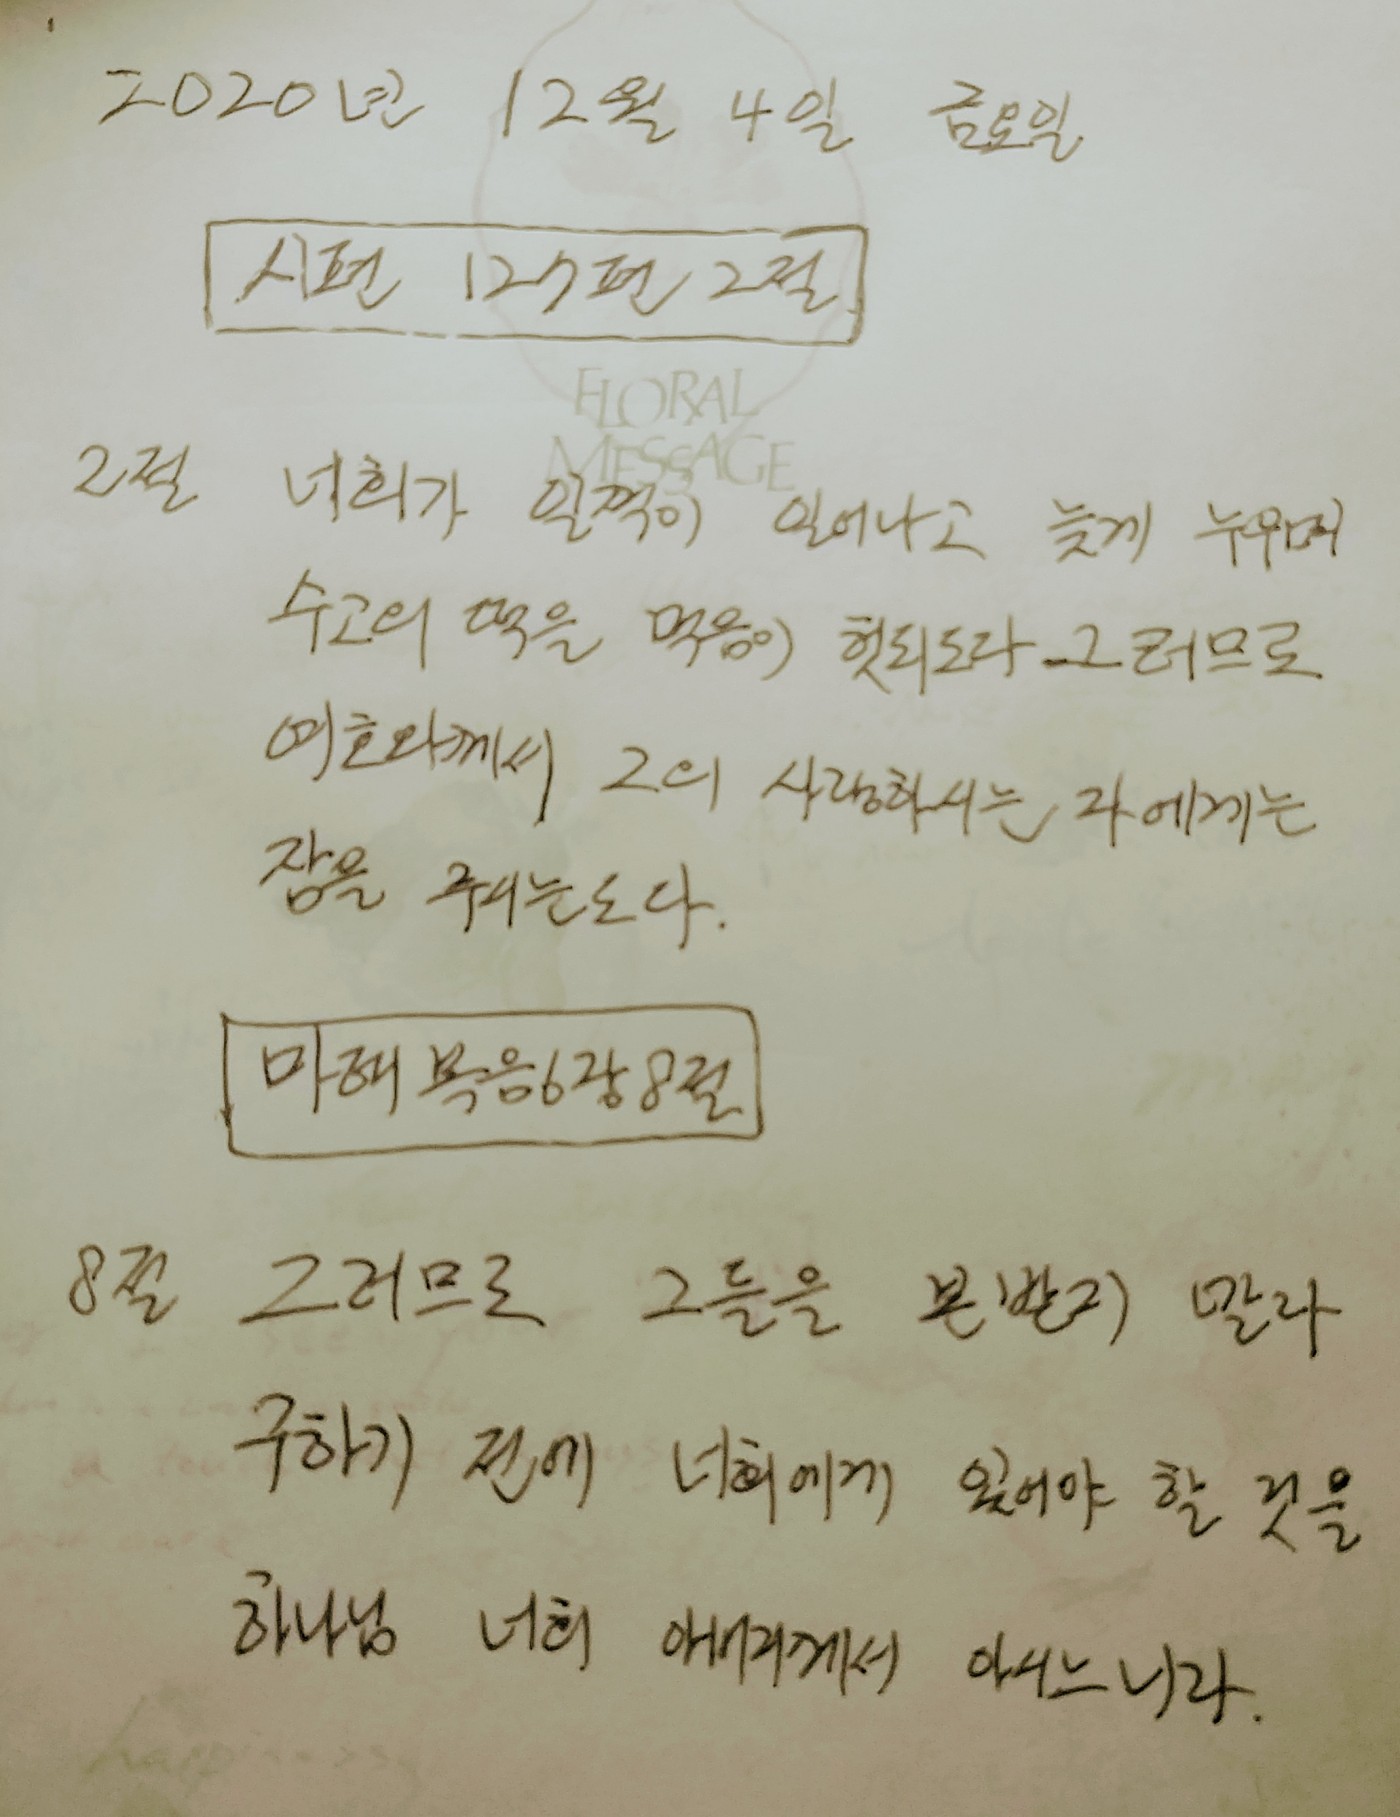 2020년 12월 4일 금요일
시편 127편 2절
FLORAL
MESSAGE
2절 너희가 일찍이 일어나고 늦게 누우며
수고의 떡을 먹음이 헛되도다 그러므로
여호와께서 그의 사랑하시는 자에게는
잠을 주시는도다.
마태복음6장8절
8절 그러므로 그들을 본받지 말라
구하기 전에 너희에게 있어야 할 것을
하나님 너희 아버지께서 아시느니라.